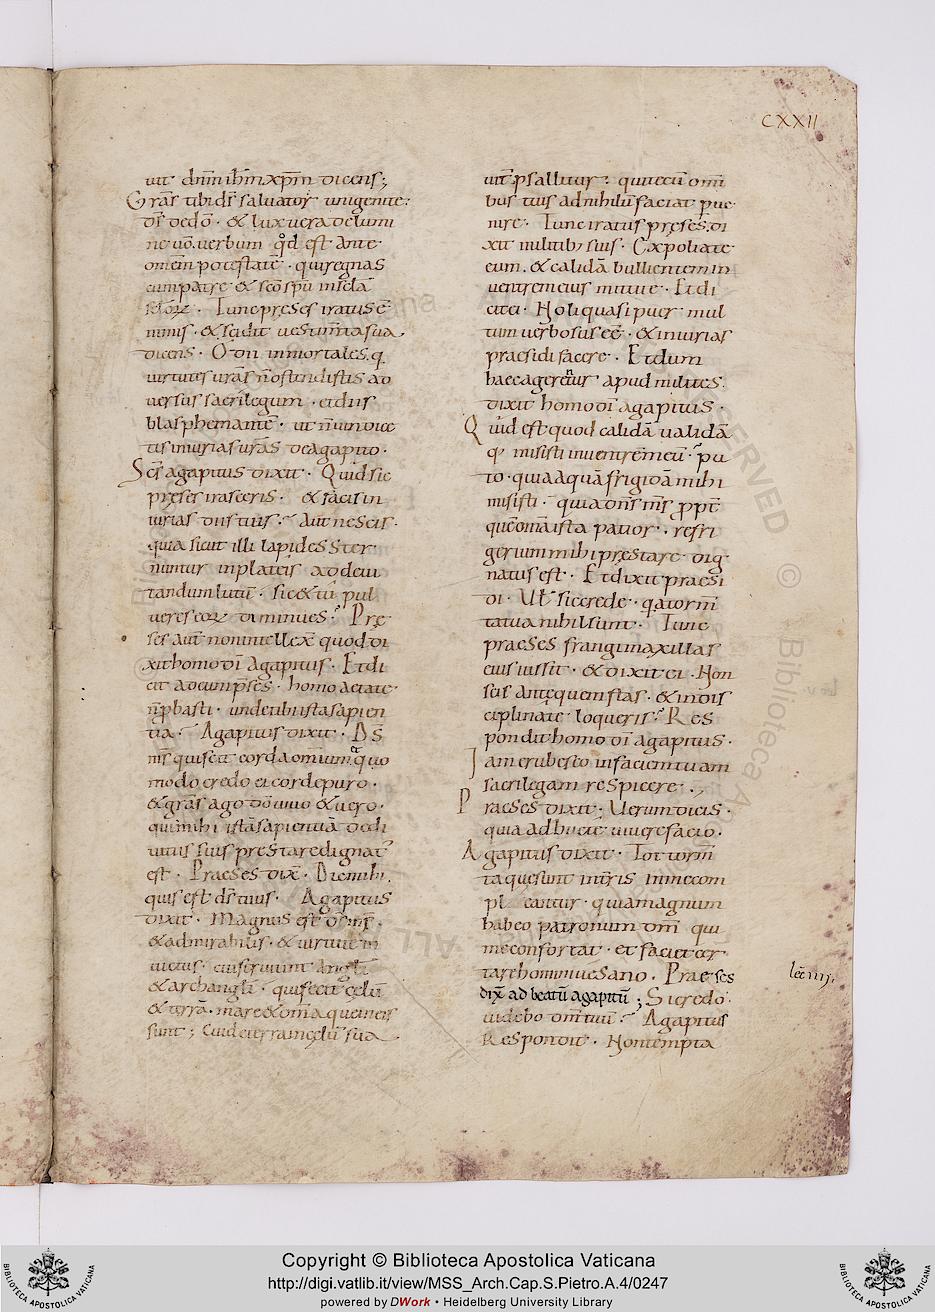 CXXII
uit dnm ihm xpm dicens;
Gras tibi ds saluator unigenite.
di dedo. & lux uera de lumi
ne uo. uerbum qd est ante
omem potestate. qui regnas
cum patre & sco spu in scla
sclorz. Tunc preses iratus e
nimis. & scidit uestimta sua.
dicens. O dii inmortales. q
uirtutes uras n ostendistis ad
uersus sacrilegum. et diis
blasphemante. ut n uindice
tis iniurias uras de agapito.
Scs agapitus dixit. Quid sic
preses irasceris. & facis in
iurias diis tuis. Aut nescis.
quia sicut illi lapides ster
nuntur in plateis ad deui
tandum lutu. sic & tu pul
ueres eorz diminues? Pre
ses aut non intellex quod di
xit homo di agapitus. Et di
cit ad eum pses. homo aetate
n pbasti. unde tibi ista sapien
tia. Agapitus dixit. Ds
ms qui scit corda omium quo
modo credo ei corde puro.
& gras ago do uiuo & uero.
qui mihi ista sapientia dedi
uitiis suis prestare dignat
est. Praeses dix. Dic mihi.
quis est ds tuus. Agapitus
dixit. Magnus est ds ms.
& admirabilis. & uirtute in
uictus. cui seruiunt angli
& archangli. qui fecit celu
& terra. mare & oma que in eis
sunt; Cui de terra in celu sua
uit psallitur. qui te cu omi
bus tuis ad nihilu faciat pue
nire. Tunc iratus preses di
xit militib suis. Expoliate
eum. & calida bullientem in
uentrem eius mittite. Et di
cit ei. Noli quasi puer mul
tum uerbosus ee. & iniurias
praesidi facere. Et dum
haec agerentur apud milites.
dixit homo di agapitus.
Quid est quod calida ualida
q misisti in uentre meu. pu
to. quia aqua frigida mihi
misisti. quia dns ms ppt
que oma ista patior. refri
gerium mihi prestare dig
natus est. Et dixit praesi
di. Ul sic crede. qa torm
ta tua nihil sunt. Tunc
praeses frangi maxillas
eius iussit. & dixit ei. Non
scis ante quem stas. & indis
ciplinate loqueris? Res
pondit homo di agapitus.
Iam erubesco in faciem tuam
sacrilegam respicere.;
Praeses dixit; Uerum dicis.
quia adhuc te uiuere facio.
Agapitus dixit. Tot torm
ta que sunt in tris in me com
pleantur. quia magnum
habeo patronum dm qui
me confortat. et facit cer
tare homini uesano. Praeses
dix ad beatu agapitu; Si credo.
uidebo dm tuu. Agapitus
Respondit. Non tempta
lec iiii.
Copyright © Biblioteca Apostolica Vaticana
http://digi.vatlib.it/view/MSS_Arch.Cap.S.Pietro.A.4/0247
powered by DWork • Heidelberg University Library